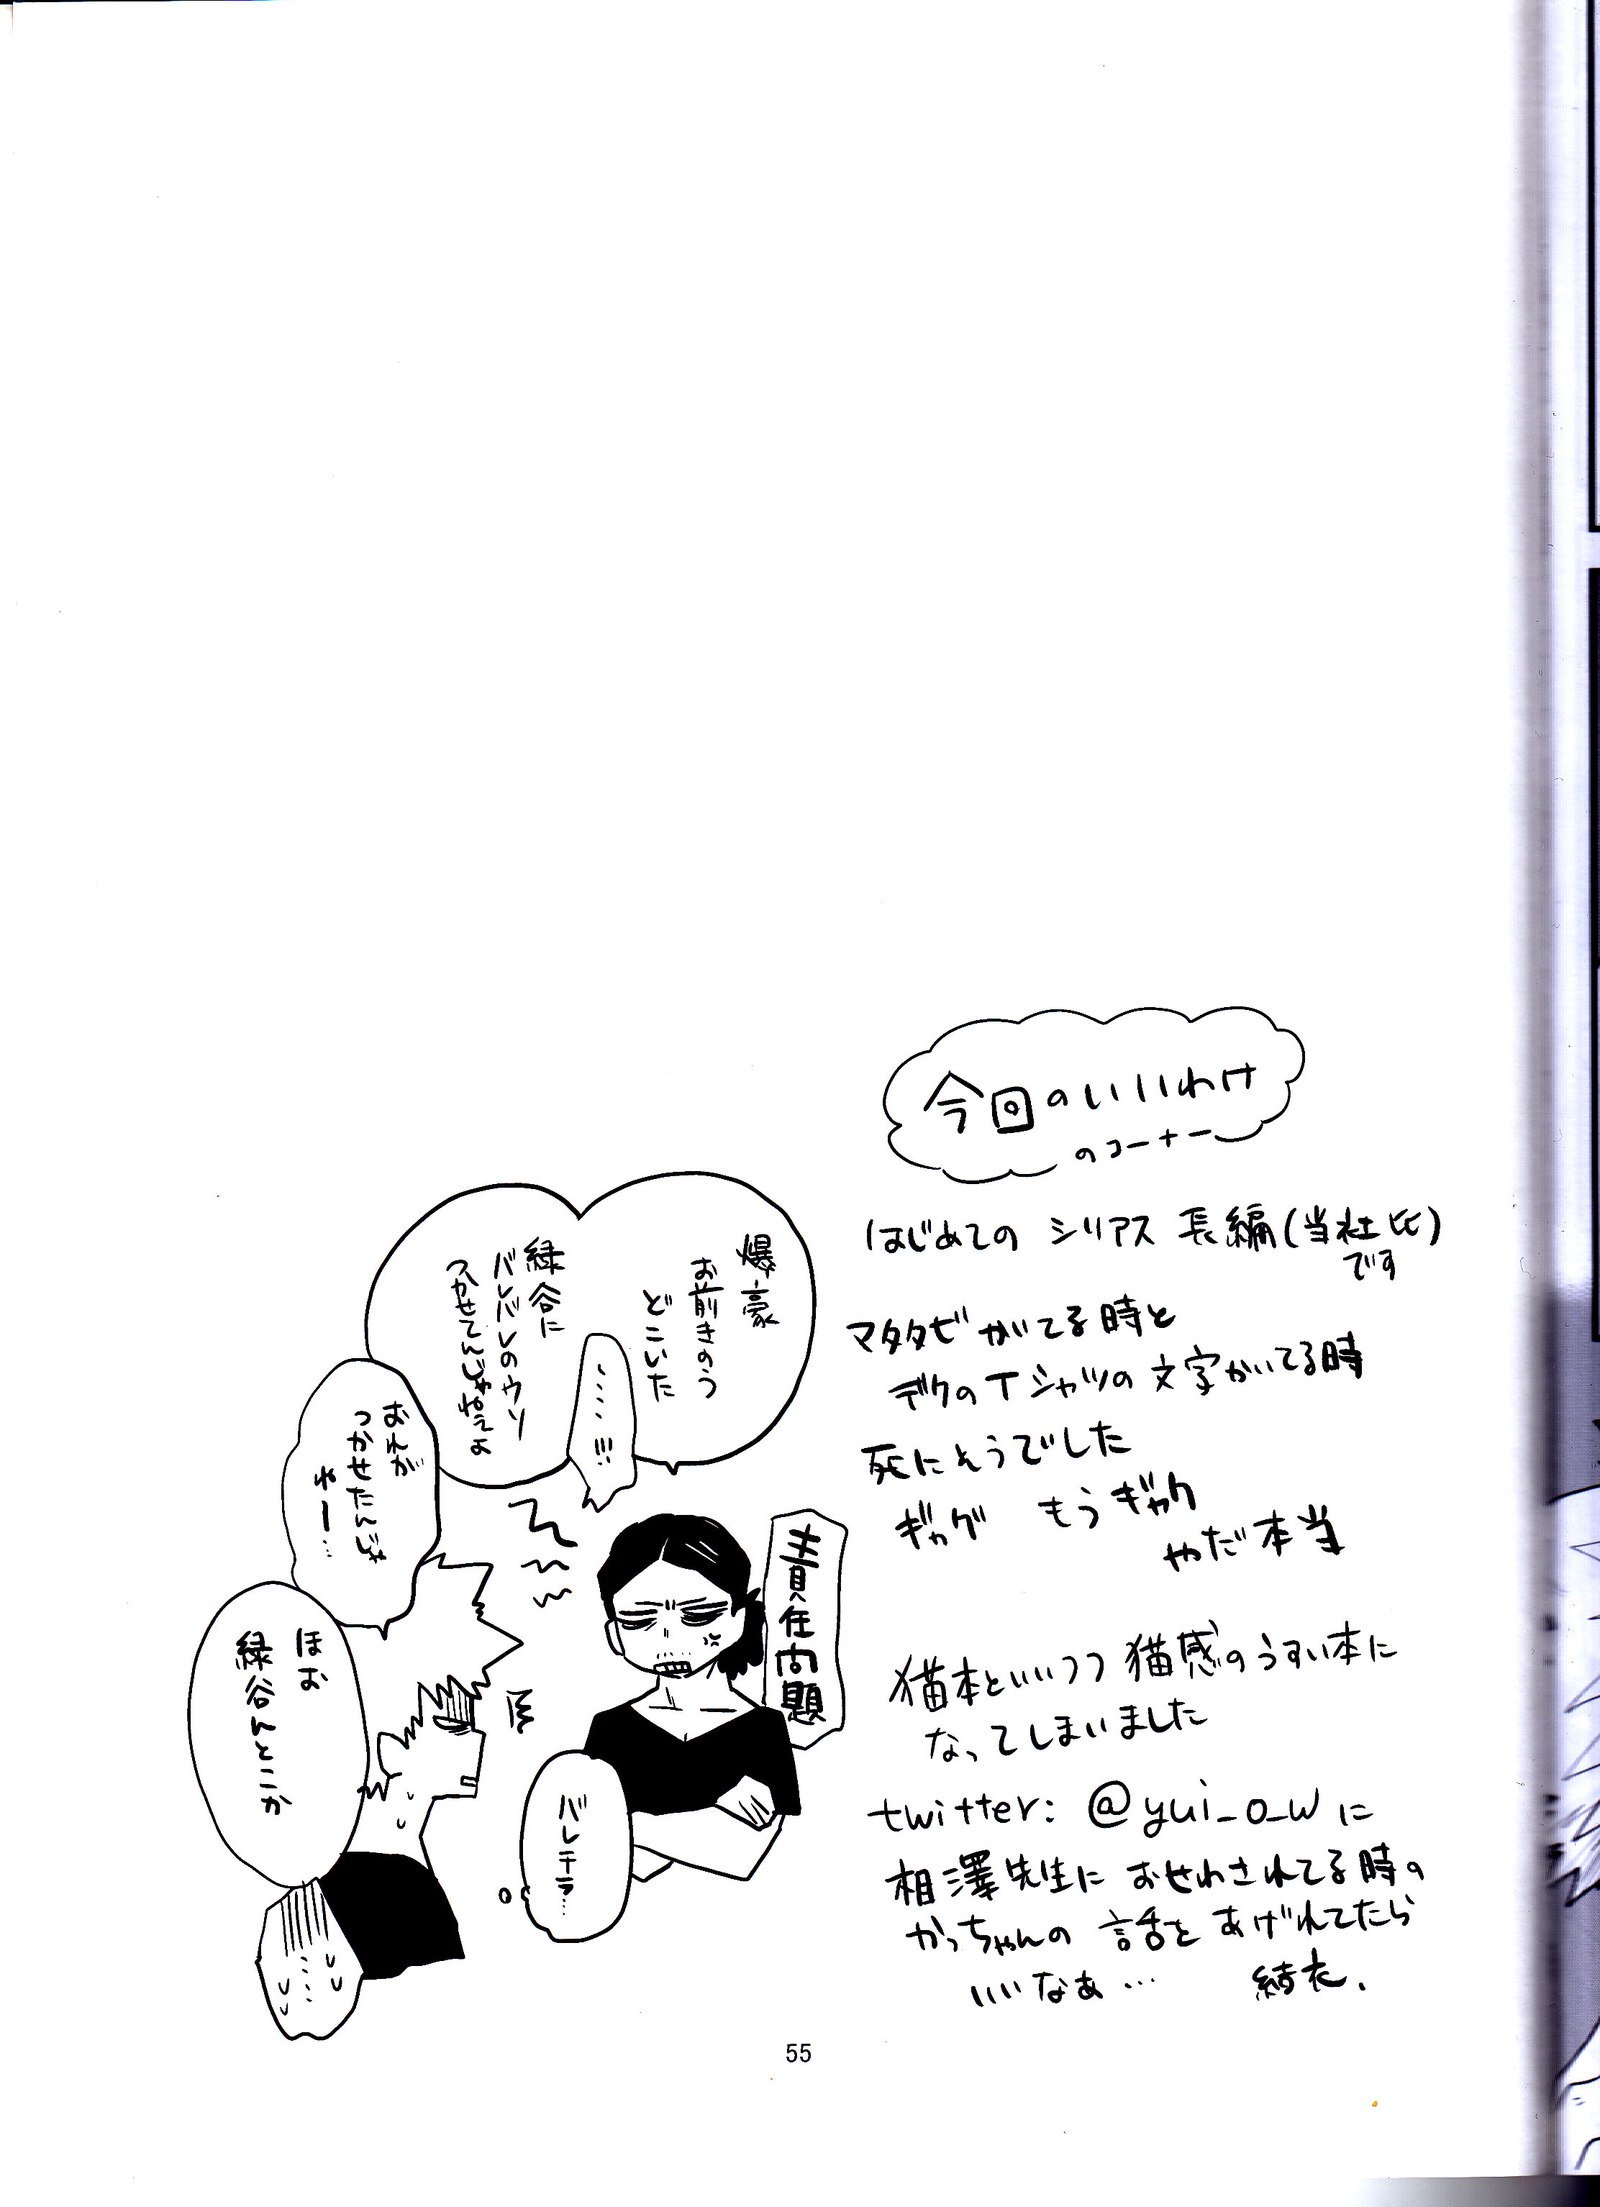 今回のいいわけ
のコーナー
はじめての シリアス 長編(当社比)
です
マタタビがいてる時と
デクのTシャツの文字かいてる時
死にそうでした
ギャグ もうギャグ
やだ本当
猫本といいつつ猫感のうすい本に
なってしまいました
twitter: @yui_o_wに
相澤先生におせわされてる時の
かっちゃんの話をあげれてたら
いいなあ… 結衣.
爆豪
お前きのう
どこいた
……!!!
緑谷に
バレバレのウソ
つかせてんじゃねえよ
おれが
つかせたんじゃ
ねー…
ほお
緑谷んとこか
……
責任問題
バレテラ…
55